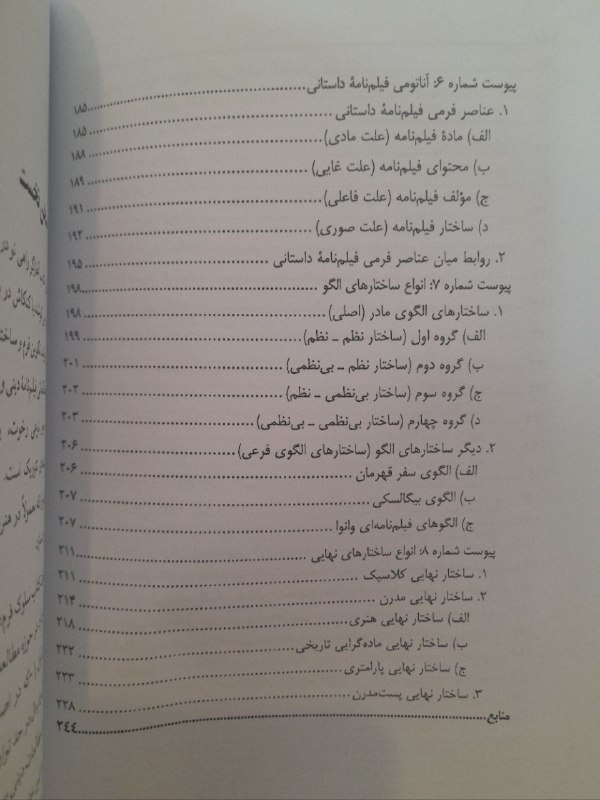 پیوست شماره ۶: آناتومی فیلم‌نامهٔ داستانی ۱۸۵
۱. عناصر فرمی فیلم‌نامهٔ داستانی ۱۸۵
الف) مادهٔ فیلم‌نامه (علت مادی) ۱۸۸
ب) محتوای فیلم‌نامه (علت غایی) ۱۸۹
ج) مؤلف فیلم‌نامه (علت فاعلی) ۱۹۱
د) ساختار فیلم‌نامه (علت صوری) ۱۹۳
۲. روابط میان عناصر فرمی فیلم‌نامهٔ داستانی ۱۹۵
پیوست شماره ۷: انواع ساختارهای الگو ۱۹۸
۱. ساختارهای الگوی مادر (اصلی) ۱۹۸
الف) گروه اول (ساختار نظم ـ نظم) ۱۹۹
ب) گروه دوم (ساختار نظم ـ بی‌نظمی) ۲۰۱
ج) گروه سوم (ساختار بی‌نظمی ـ نظم) ۲۰۲
د) گروه چهارم (ساختار بی‌نظمی ـ بی‌نظمی) ۲۰۳
۲. دیگر ساختارهای الگو (ساختارهای الگوی فرعی) ۲۰۶
الف) الگوی سفر قهرمان ۲۰۶
ب) الگوی بیگالسکی ۲۰۷
ج) الگوهای فیلم‌نامه‌ای وانوا ۲۰۷
پیوست شماره ۸: انواع ساختارهای نهایی ۲۱۱
۱. ساختار نهایی کلاسیک ۲۱۱
۲. ساختار نهایی مدرن ۲۱۴
الف) ساختار نهایی هنری ۲۱۸
ب) ساختار نهایی ماده‌گرایی تاریخی ۲۳۲
ج) ساختار نهایی پارامتری ۲۳۳
۳. ساختار نهایی پست‌مدرن ۲۳۸
منابع ۲۴۴